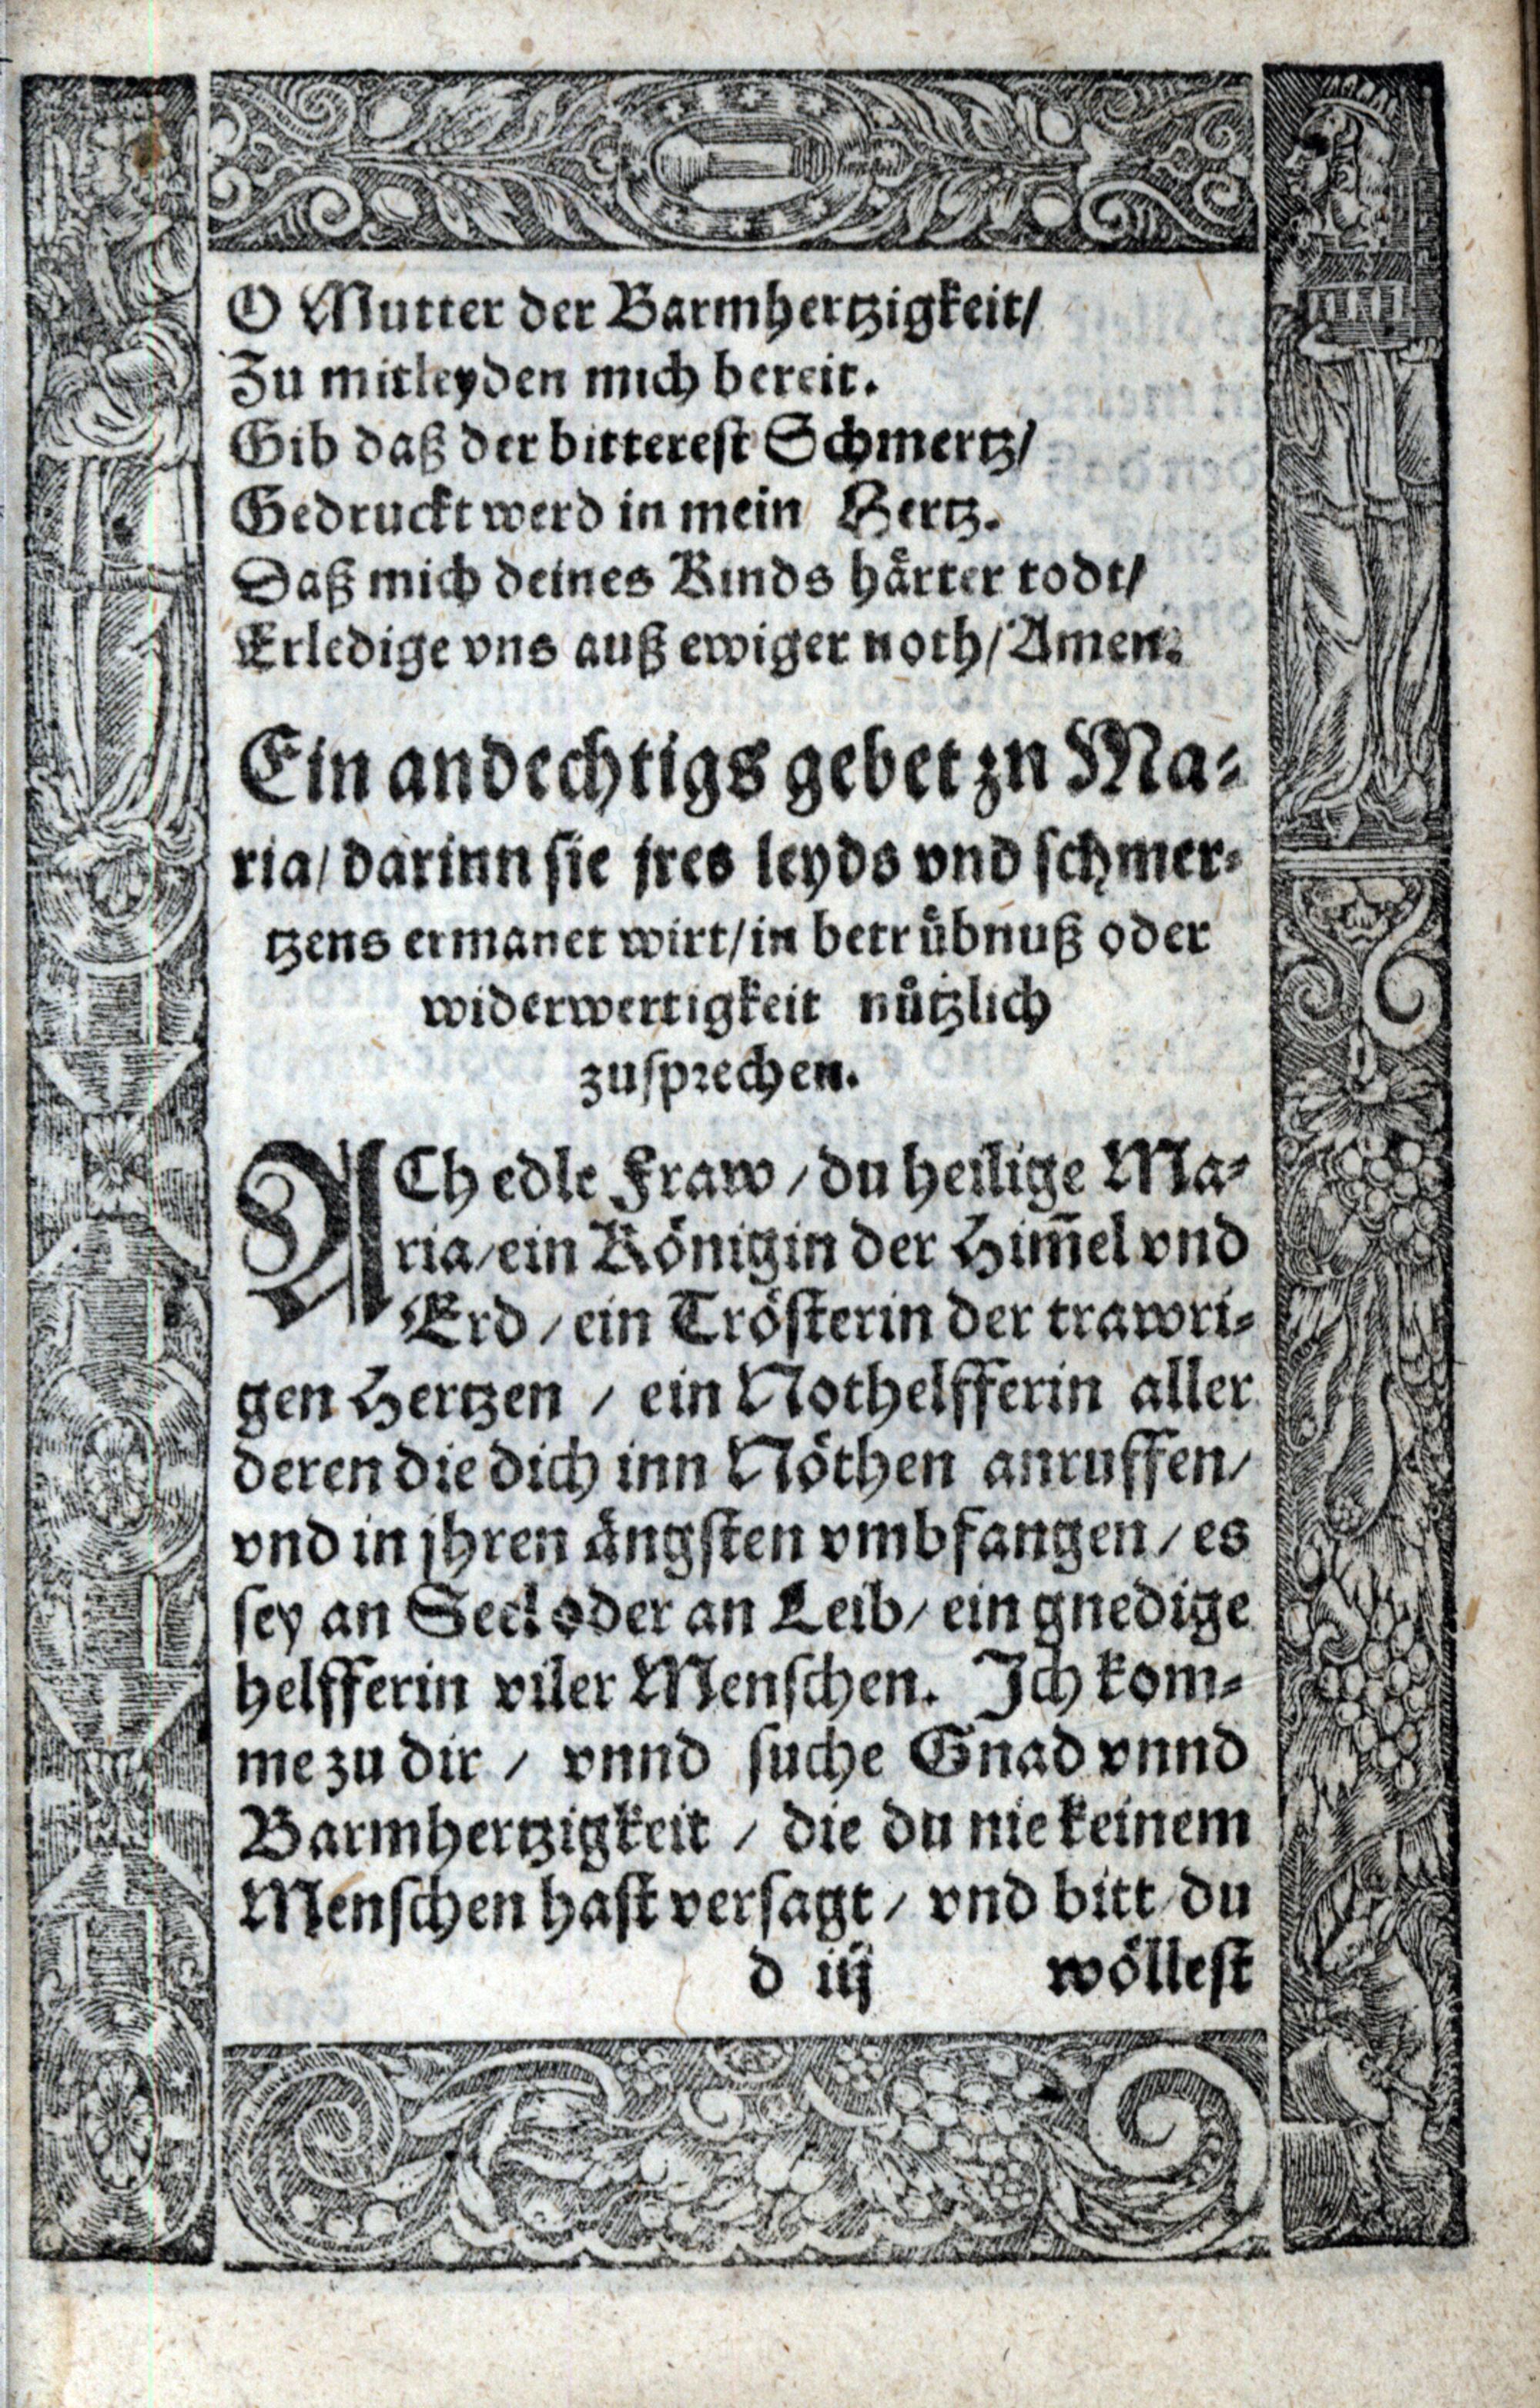 O Mutter der Barmhertzigkeit/
Zu mitleyden mich bereit.
Gib daß der bitterest Schmertz/
Gedruckt werd in mein Hertz.
Daß mich deines Kinds härter todt/
Erledige vns auß ewiger noth/ Amen.
Ein andechtigs gebet zu Ma⸗
ria/ darinn sie jres leyds vnd schmer⸗
tzens ermanet wirt/ in betrübnuß oder
widerwertigkeit nützlich
zusprechen.
ACh edle Fraw / du heilige Ma⸗
ria/ ein Königin der Him̄el vnd
Erd / ein Trösterin der trawri⸗
gen Hertzen / ein Nothelfferin aller
deren die dich inn Nöthen anruffen/
vnd in jhren ängsten vmbfangen / es
sey an Seel oder an Leib / ein gnedige
helfferin viler Menschen. Ich kom⸗
me zu dir / vnnd suche Gnad vnnd
Barmhertzigkeit / die du nie keinem
Menschen hast versagt / vnd bitt du
d iij wöllest